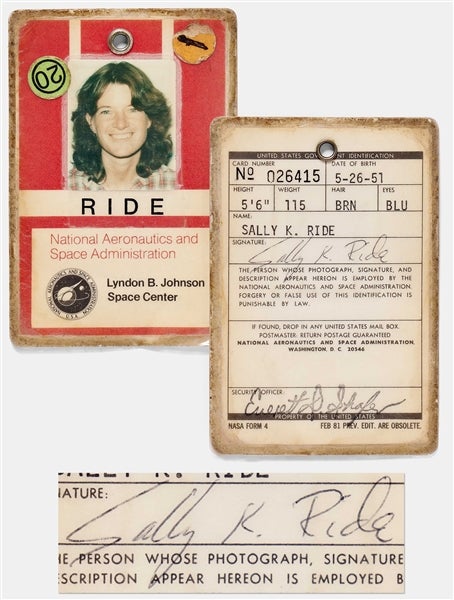 20
RIDE
National Aeronautics and
Space Administration
Lyndon B. Johnson
Space Center
NATIONAL AERONAUTICS AND SPACE ADMINISTRATION
U.S.A.
UNITED STATES GOVERNMENT IDENTIFICATION
CARD NUMBER DATE OF BIRTH
Nº 026415 5-26-51
HEIGHT WEIGHT HAIR EYES
5'6" 115 BRN BLU
NAME:
SALLY K. RIDE
SIGNATURE:
Sally K. Ride
THE PERSON WHOSE PHOTOGRAPH, SIGNATURE, AND
DESCRIPTION APPEAR HEREON IS EMPLOYED BY THE
NATIONAL AERONAUTICS AND SPACE ADMINISTRATION.
FORGERY OR FALSE USE OF THIS IDENTIFICATION IS
PUNISHABLE BY LAW.
IF FOUND, DROP IN ANY UNITED STATES MAIL BOX.
POSTMASTER: RETURN POSTAGE GUARANTEED
NATIONAL AERONAUTICS AND SPACE ADMINISTRATION,
WASHINGTON, D. C. 20546
SECURITY OFFICER:
PROPERTY OF THE UNITED STATES
NASA FORM 4 FEB 81 PREV. EDIT. ARE OBSOLETE.
SALLY K. RIDE
NATURE:
Sally K. Ride
HE PERSON WHOSE PHOTOGRAPH, SIGNATURE
ESCRIPTION APPEAR HEREON IS EMPLOYED B